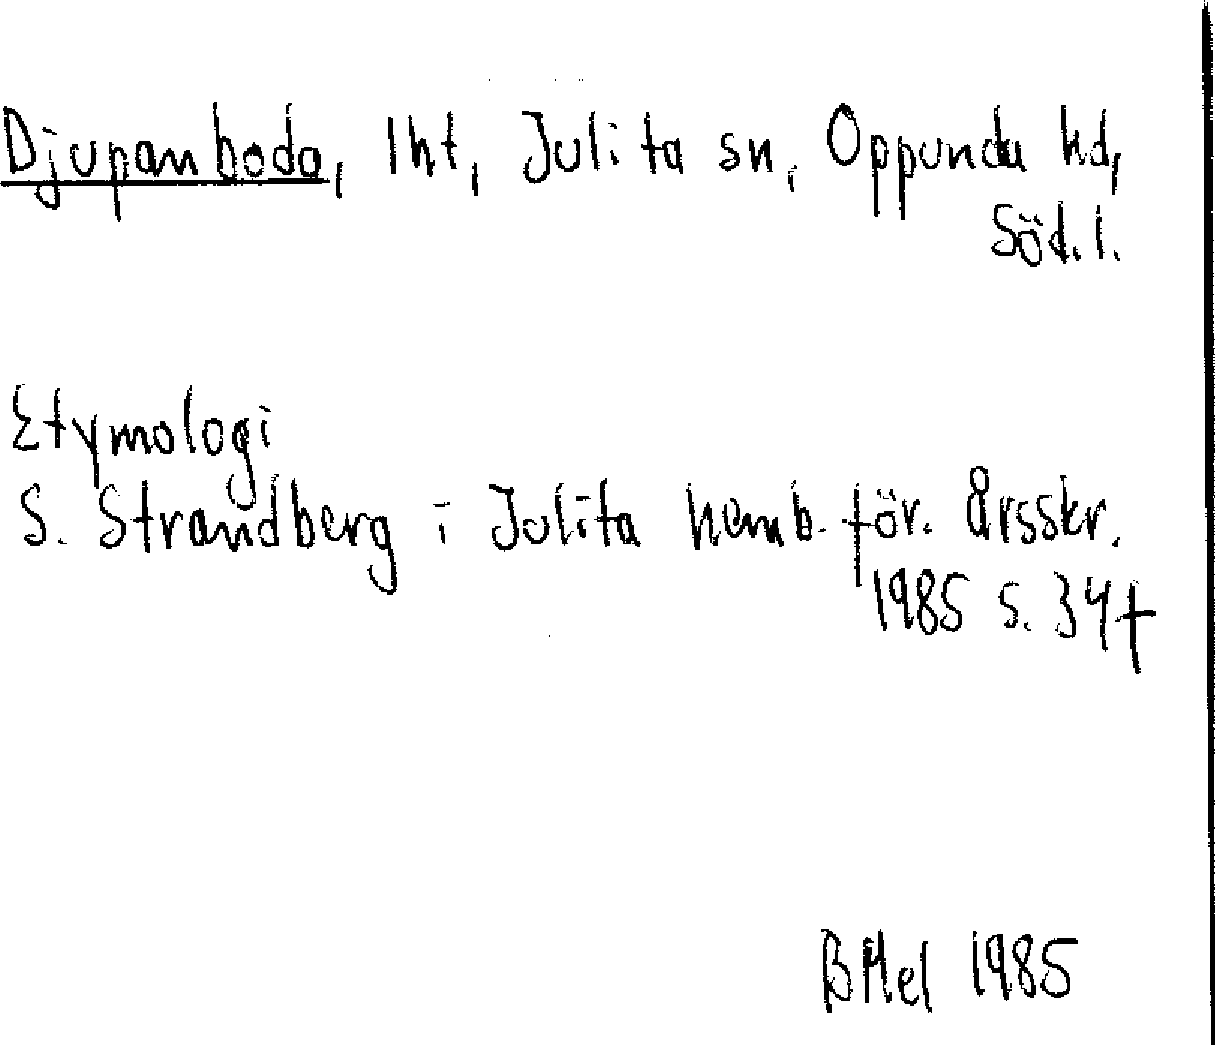 Djupanboda, lht, Julita sn, Oppunda hd,
Söd. l.
Etymologi
S. Strandberg i Julita hemb. för. årsskr.
1985 s. 34 f
BHel 1985